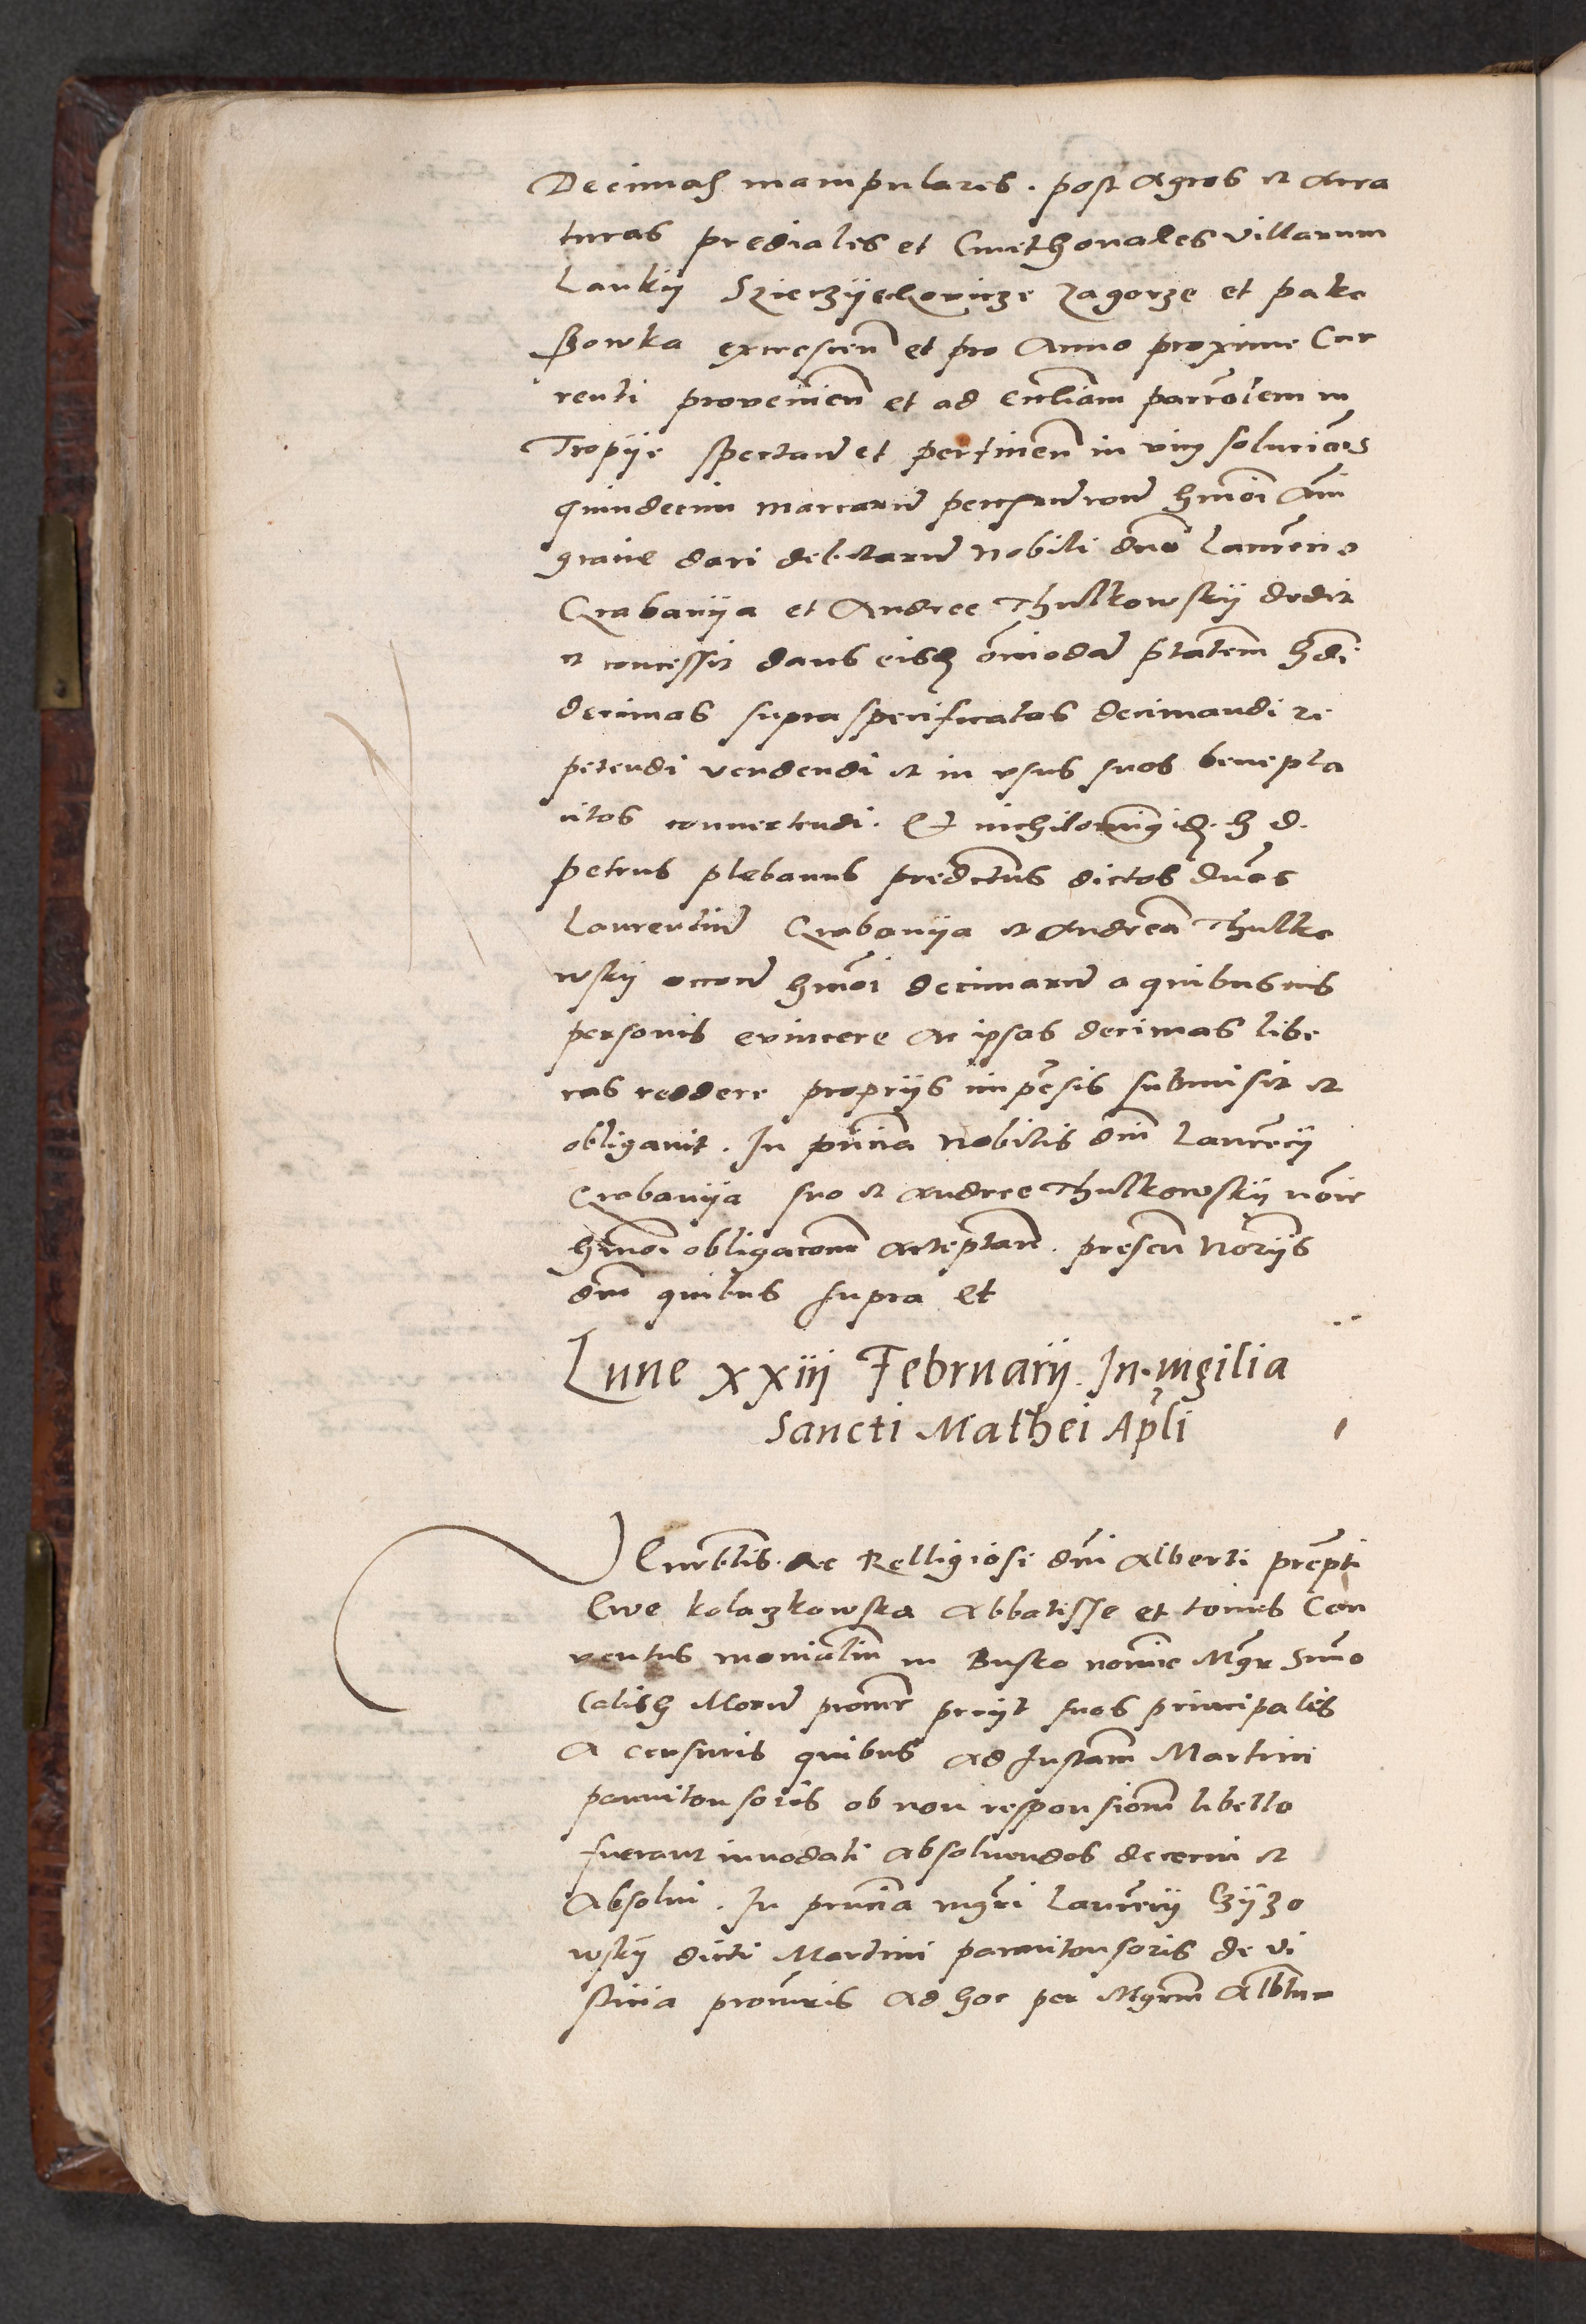 Decimas manipulares . post agros et arra
turas prediales et Cmethonales villarum
Lanky Szieczyechovicze Zagorze et pako
szowka excrescen et pro Anno proxime Cur
renti provenien et ad eccliam parrolem in
Tropye spectan et pertinen in vim solucionis
quindecim marcarum
gracie dari debitarum Nobili dno Laurencio
Grabanya et Andree Thulkowsky dedit
et concessit dans eisdem omnimodam ptatem hmoi
decimas supra specificatas decimandi re
petendi vendendi et in usus suos benepla
citos convertendi . Et nichilominus id. h d.
petrus plebanus predictus dictos dnos
Laurentium Grabanya et Andream Thulko
wsky occone hmoi decimarum a quibusuis
personis evincere ac ipsas decimas libe
ras reddere propriis impensis submisit et
obligavit . In pncia Nobilis dni Laurecii
Grabanya suo et Andree Thulkowsky noie
hmoi obligaconem acceptan . presen Noriis
dni quibus supra et
Lune xxiij Februarij . In . vigilia
Sancti Mathei Apli
Venerablis . ac Relligiosi dni Alberti prepti
Eve kolaczkowska Abbatisse et tocius Con
ventus monialium in Busko nomine Mgr Stano
Calish Morum procur petiit suos principales
a censuris quibus ad Instam Martini
pannitonsoris ob non responsionem libello
fuerant innodati absoluendos decerni et
Absolui . In pncia mgri Laurecii Czyzo
wsky dicti Martini pannitonsoris de Vi
slicia procuris ad hoc per Mgrum Albtum